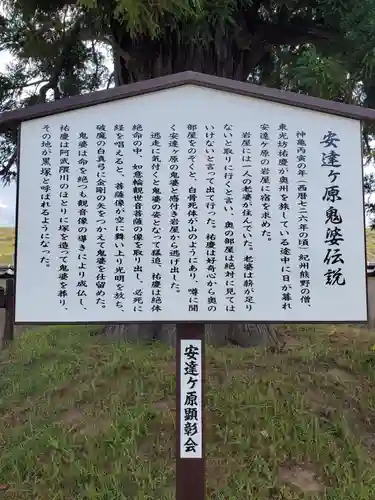 安達ヶ原鬼婆伝説
神亀丙寅の年(西暦七二六年の頃)紀州熊野の僧
東光坊祐慶が奥州を旅している途中に日が暮れ
安達ヶ原の岩屋に宿を求めた。
岩屋には一人の老婆が住んでいた。老婆は薪が足り
ないと取りに行くと言い、奥の部屋は絶対に見ては
いけないと言って出て行った。祐慶は好奇心から奥の
部屋をのぞくと、白骨死体が山のようにあり、噂に聞
く安達ヶ原の鬼婆と感付き岩屋から逃げ出した。
逃走に気付くと老婆の姿となって猛追。祐慶は絶体
絶命の中、如意輪観世音菩薩の像を取り出し、必死に
経を唱えると、菩薩像が空に舞い上り光明を放ち、
破魔の白真弓に金剛の矢をつがえて鬼婆を仕留めた。
鬼婆は命を絶つも観音像の導きにより成仏し、
祐慶は阿武隈川のほとりに塚を造って鬼婆を葬り、
その地が黒塚と呼ばれるようになった。
安達ヶ原顕彰会